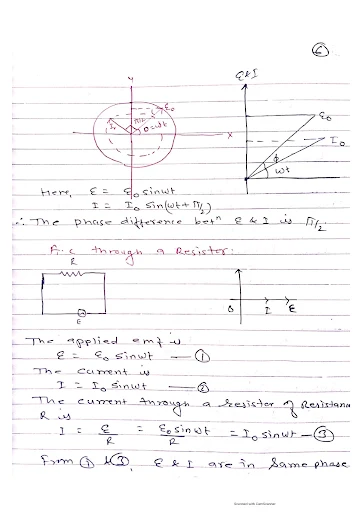 6
y
ε & I
I₀
π/2
ε₀
θ=ωt
x
ε₀
I₀
φ
ωt
Here, ε = ε₀ sinωt
I = I₀ sin(ωt + π/2)
∴ The phase difference betn ε & I is π/2
A.C through a Resistor:
R
E
O I ε
The applied emf is
ε = ε₀ sinωt — ①
The current is
I = I₀ sinωt — ②
The current through a resistor of Resistance
R is
I = ε/R = ε₀ sinωt/R = I₀ sinωt — ③
From ① & ③, ε & I are in Same phase
Scanned with CamScanner